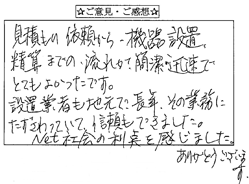 ☆ご意見・ご感想☆
見積もり依頼から、機器設置、
精算までの流れが簡潔迅速で
とてもよかったです。
設置業者も地元で長年、その業務に
たずさわっていて、信頼もできました。
Net社会の利点を感じました。
ありがとうございます。